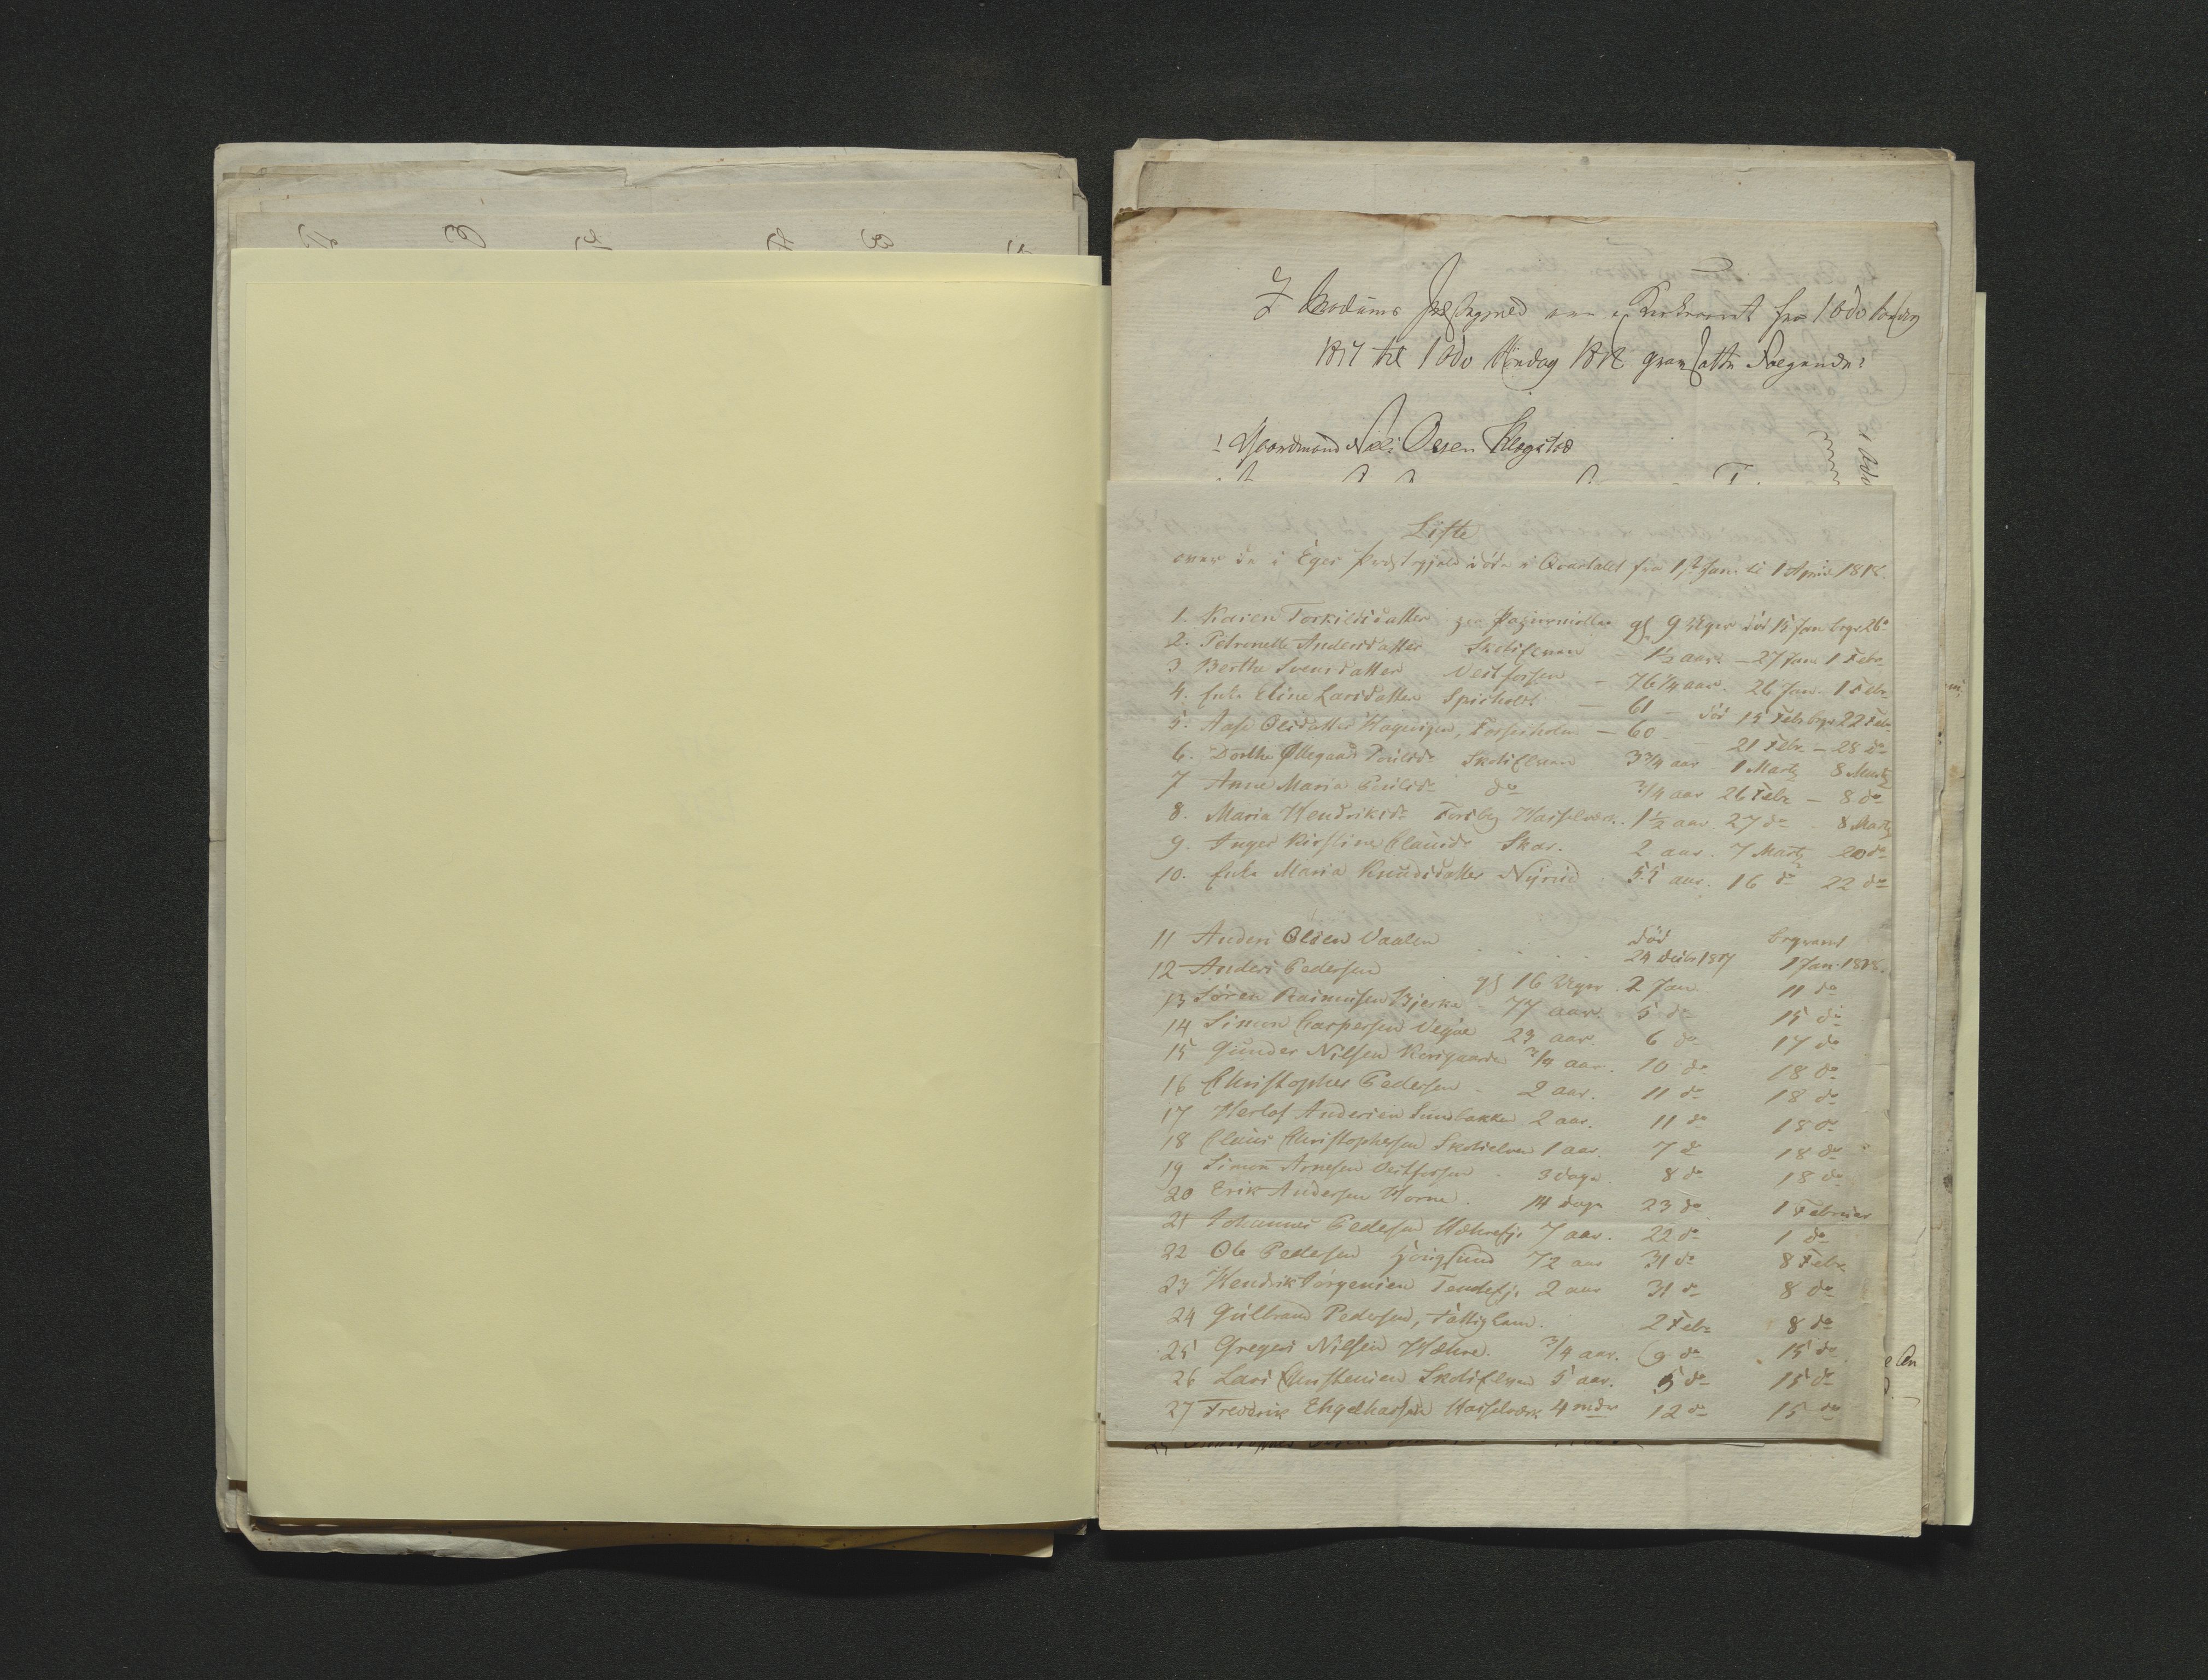 I Modums Præstegield ere i Qvartalet fra 1 Odo Søndag
1817 til 1 Odo Søndag 1818 gravsatte Følgende:
1 Gaardmand Niels Olsen Skogstad
Liste
over de i Eger Præstegjeld døde i Qvartalet fra 1ste Jan. til 1 April 1818.
1. Karen Torkildsdatter Papirmøllen gl. 9 Uger død 15 Jan begr 26 do
2. Petronelle Andersdatter Skotselven - 1½ aar. - 27 Jan. 1 Febr.
3. Berthe Svensdatter Vestfossen - 76¼ aar. 26 Jan. 1 Febr.
4. Enke Eline Larsdatter - 61 - død 15 Febr begr 22 Febr
5. Aase Olsdatter Fossesholm - 60 - 21 Febr. - 28 do
6. Dorthe Poulsdr Skotselven 3¾ aar 1 Marts 8 Marts
7 Anne Maria Poulsdr do ¾ aar 26 Febr - 8 do
8. Maria Hendriksdr Fossbg Hasselværk. 1½ aar 27 do. 8 Marts
9. Inger Kirstine Clausdr Skar. 2 aar. 7 Marts 20 do
10. Enke Maria Knudsdatter Nyrud. 55 aar. 16 do 22 do
død begravet
11 Anders Olsen Vaalen . . . . 24 Decbr 1817 1 Jan. 1818.
12 Anders Pedersen . gl 16 Uger. 2 Jan 11 do
13 Søren Rasmussen Bjerke - 77 aar. 5 do 15 do
14 Simon Caspersen 23 aar. 6 do 17 do
15 Gunder Nilsen Korsgaarden ¾ aar. 10 do 18 do
16 Christopher Pedersen - 2 aar. 11 do 18 do
17 Herlof Andersen Sundbakken 2 aar. 11 do 18 do
18 Claus Christophersen Skotselven 1 aar. 7 do 18 do
19 Simon Arnesen Vestfossen - 3 dage. 8 do 18 do
20 Erik Andersen Horne. 14 dage 23 do 1 Februar
21 Johannes Pedersen 7 aar. 22 do 1 do
22 Ole Pedersen Hougsund 72 aar 31 do 8 Febr
23 Hendrik Jørgensen 2 aar 31 do 8 do
24 Gulbrand Pedersen, Fattiglem. 2 Febr 8 do
25 Gregers Nilsen Hæhre. ¾ aar. 9 do 15 do
26 Lars Christensen Skotselven 5 aar. 5 do 15 do
27 Frederik Engelhardsen Hasselværk 4 mdr 12 do 15 do